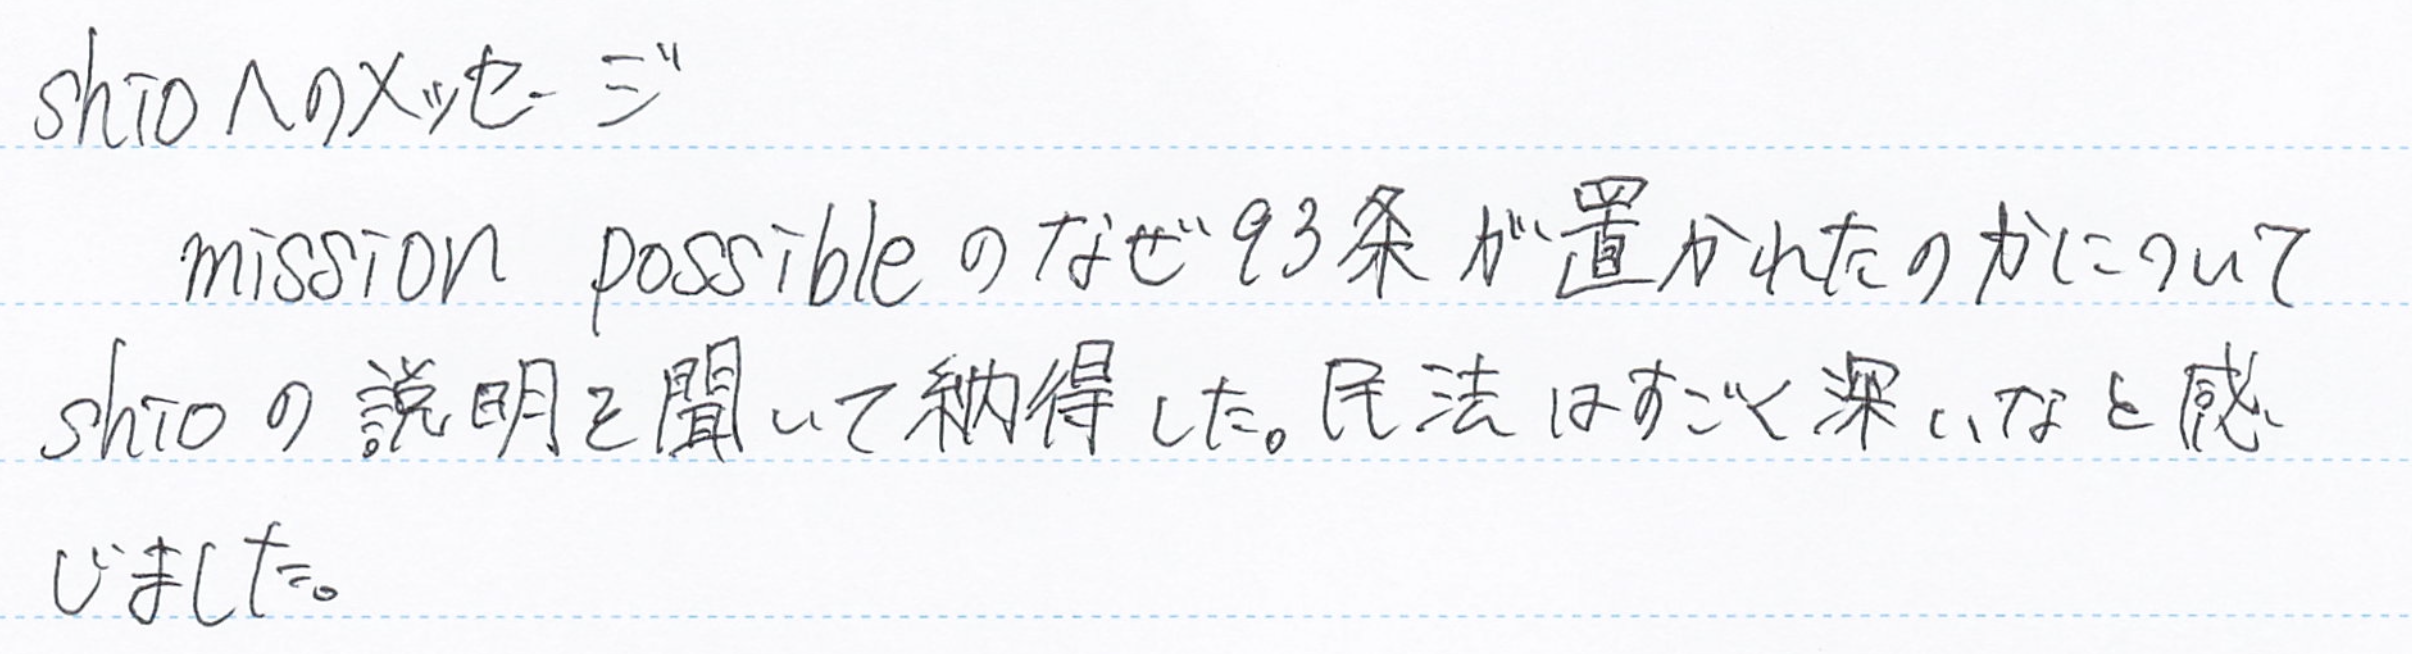 shioへのメッセージ
mission possibleのなぜ93条が置かれたのかについて
shioの説明を聞いて納得した。民法はすごく深いなと感
じました。